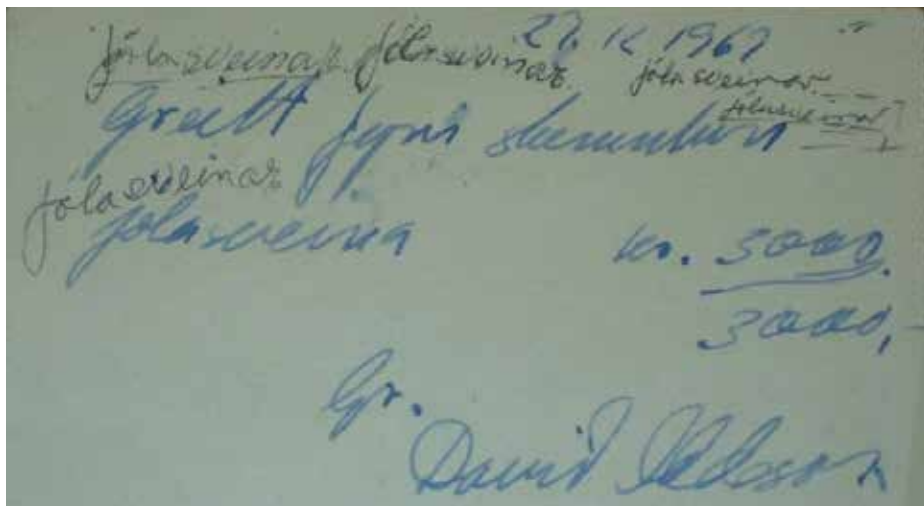 27. 12 1967
jólasveinar. jólasveinar. jólasveinar.
jólasveinar
Greitt fyrir skemmtun
jólasveinar
jólasveina kr. 3000.
3000,
Gr.
David